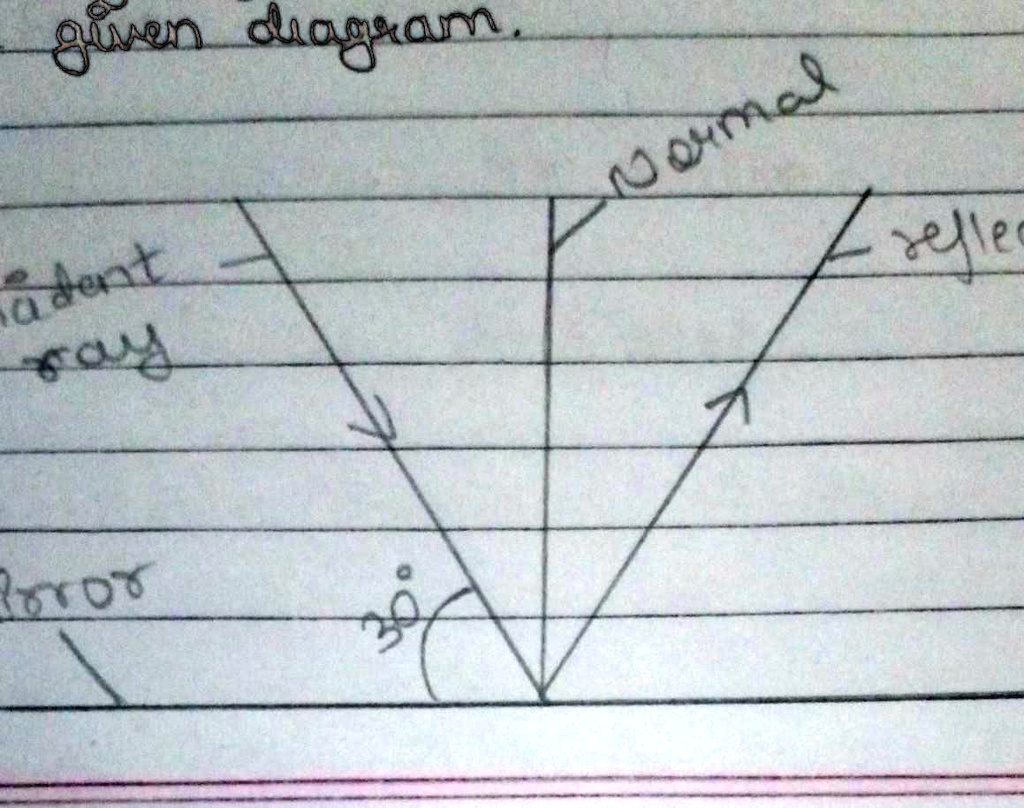 given diagram.
Normal
reflec
ident
ray
30°
irror